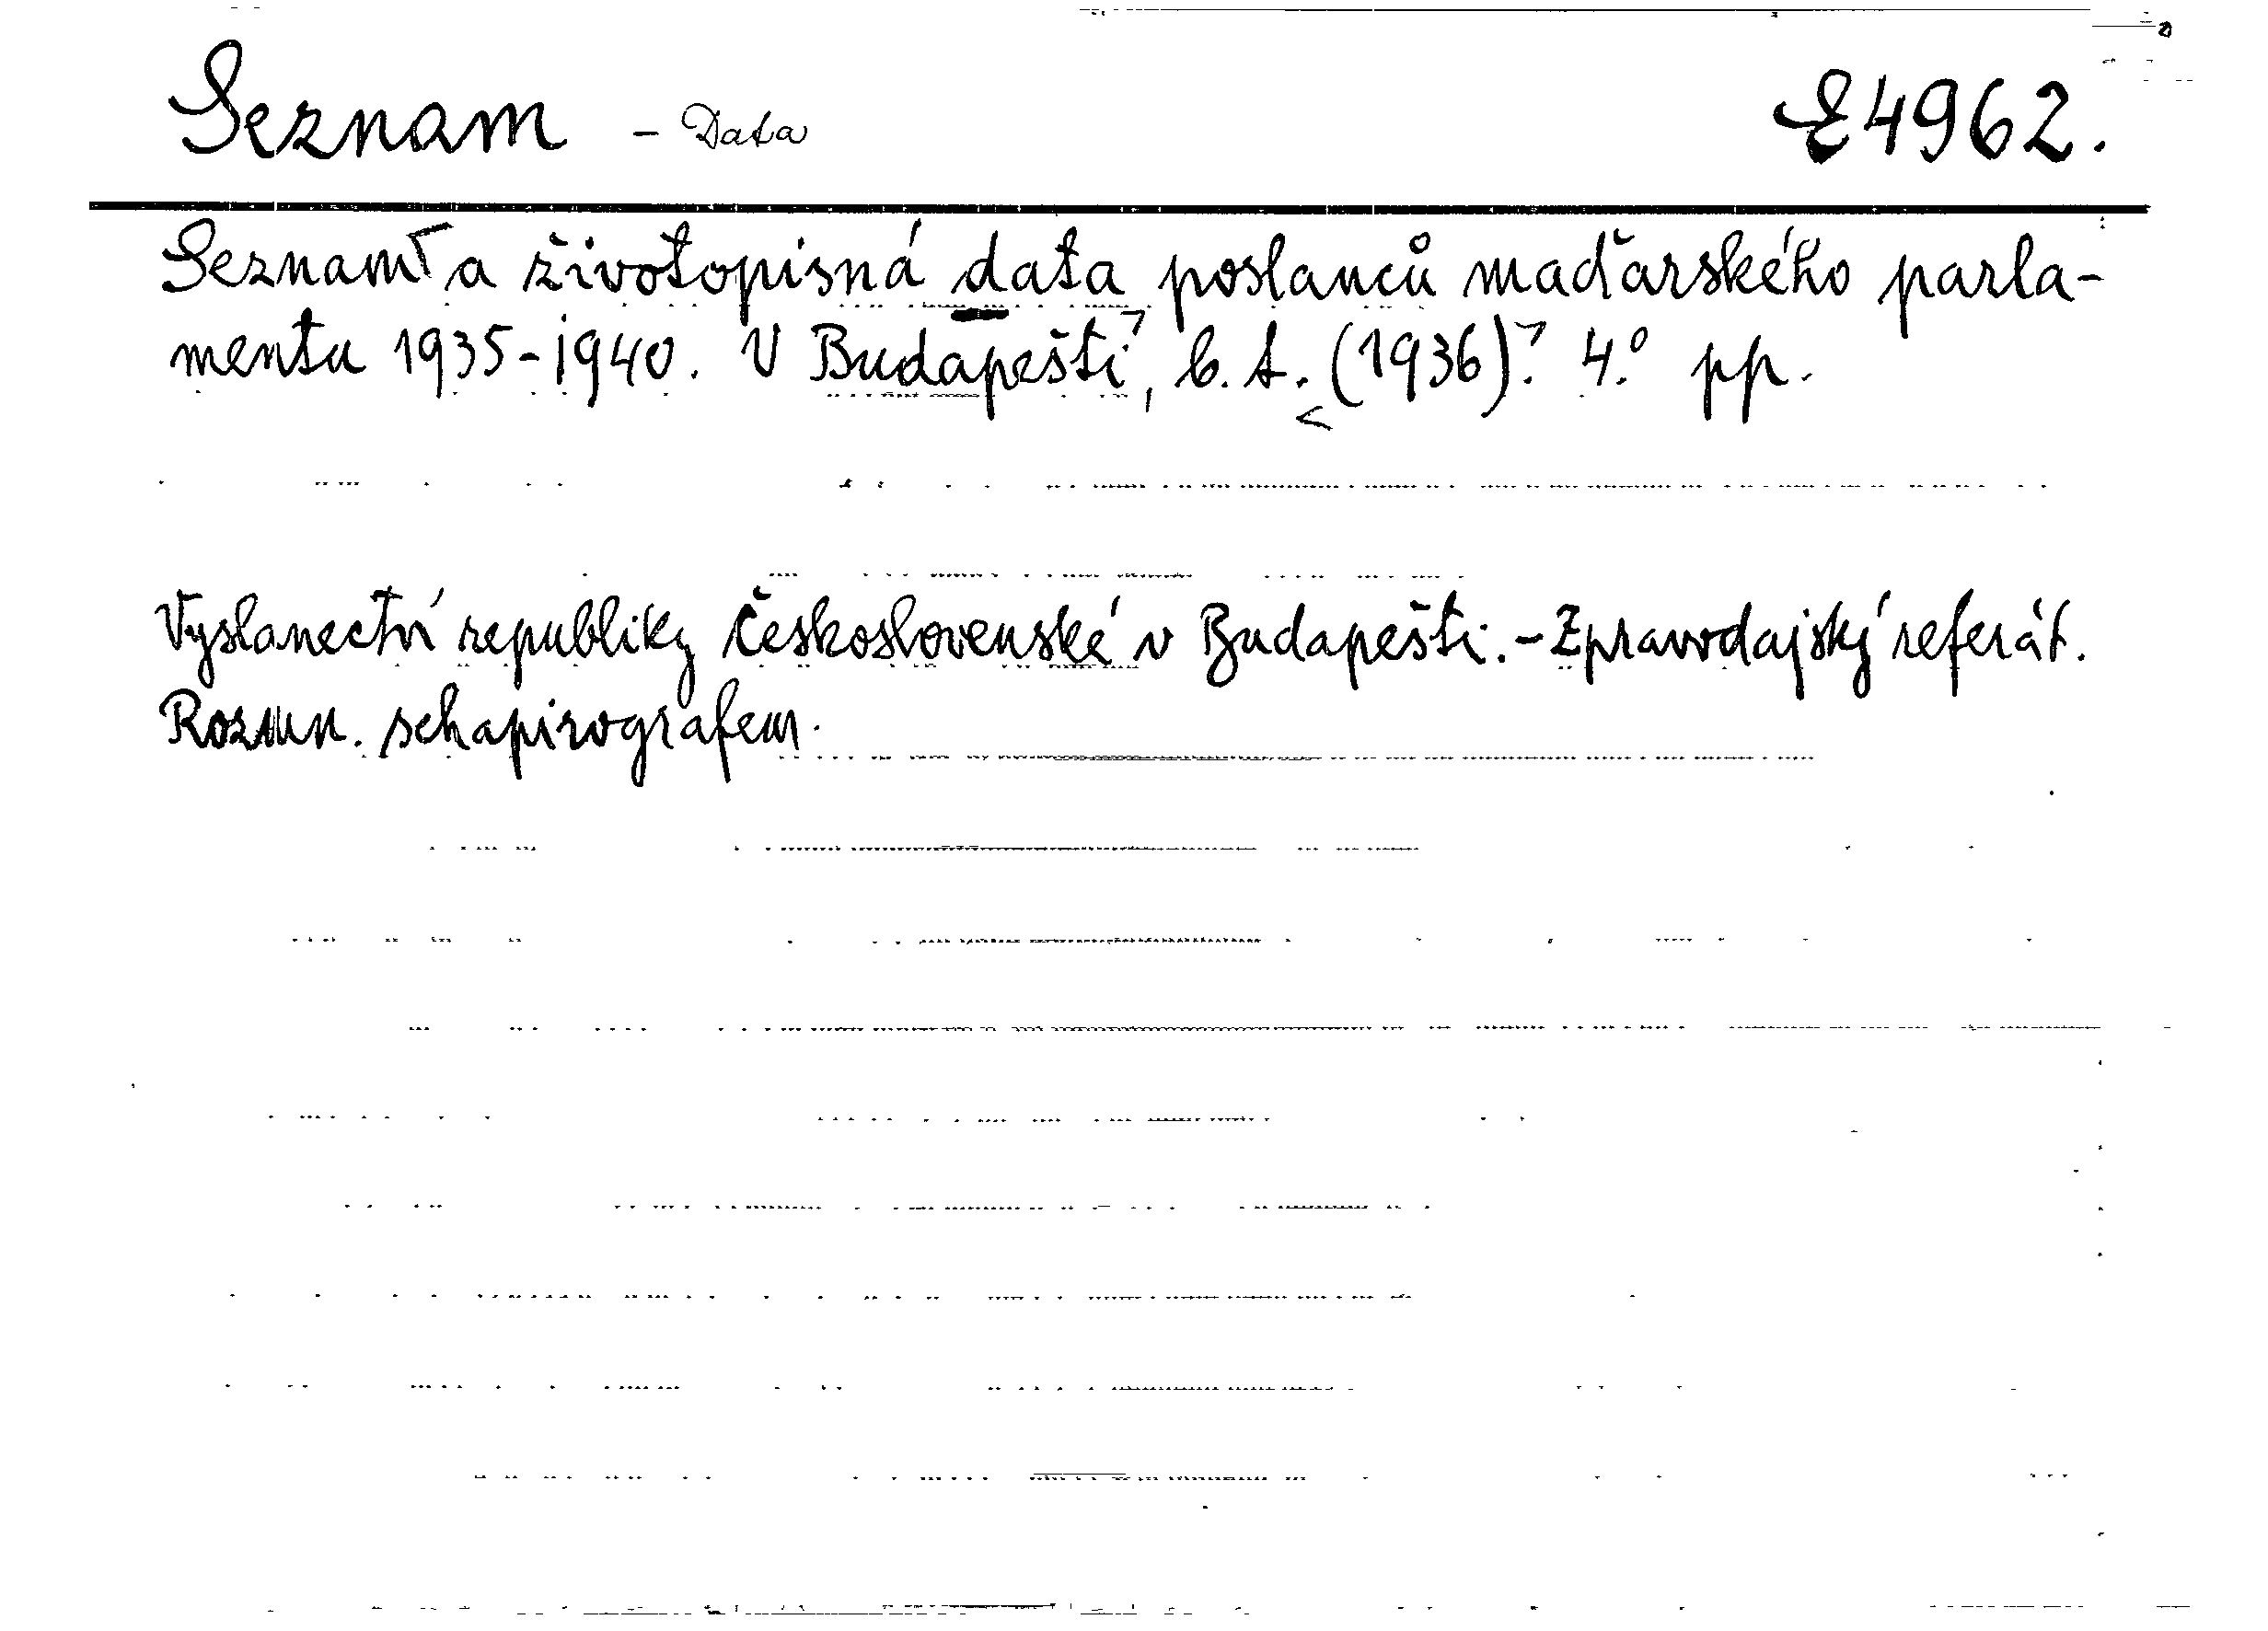 Seznam - Data E 4962.
Seznam a životopisná data poslanců maďarského parla-
mentu 1935-1940. V Budapešti, b. t. (1936). 4.° pp.
Vyslanectví republiky Československé v Budapešti. - Zpravodajský referát.
Rozmn. schapirografem.